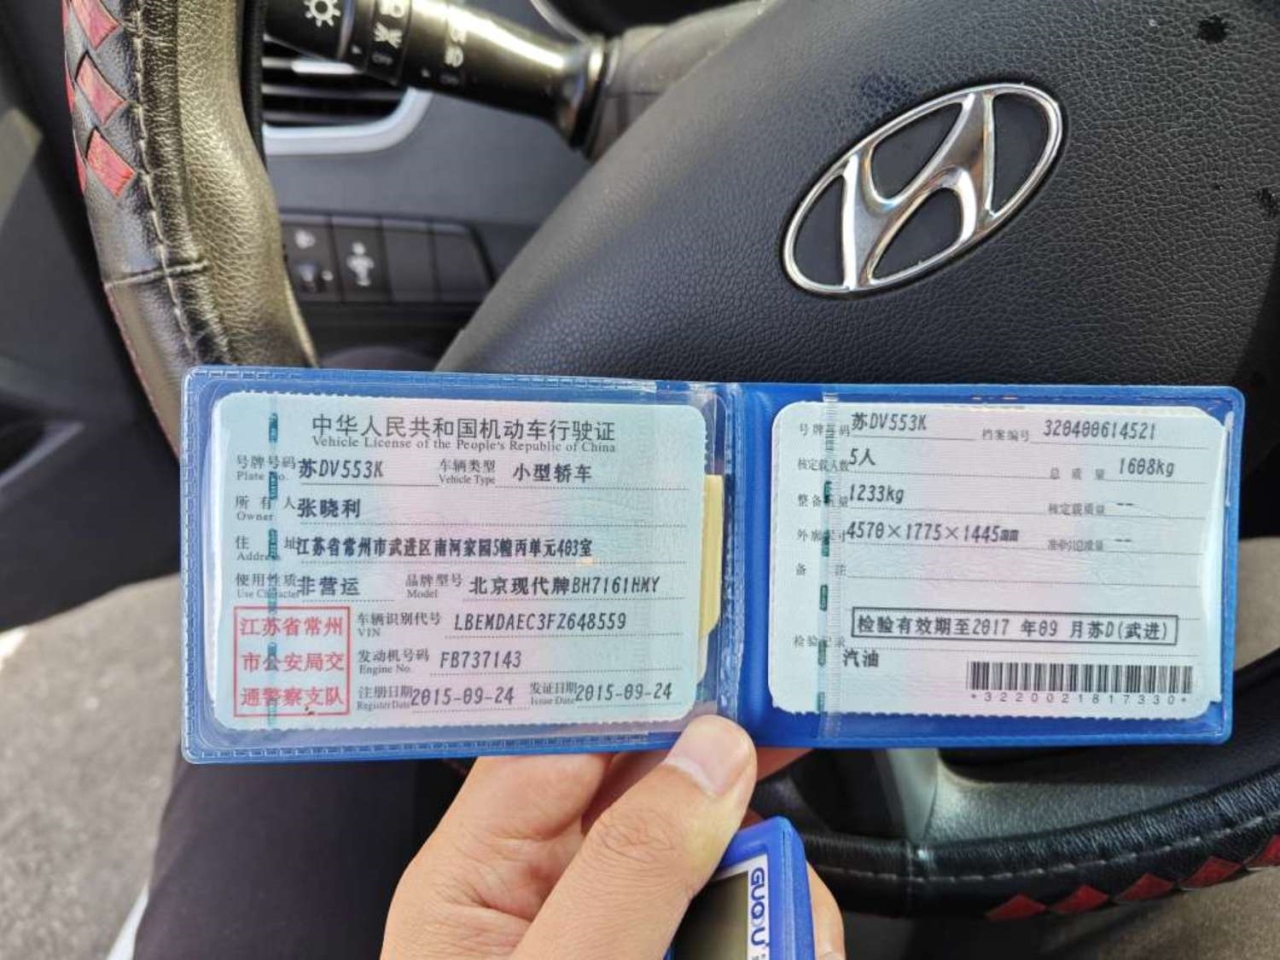 中华人民共和国机动车行驶证
Vehicle License of the People's Republic of China
号牌号码 苏DV553K 车辆类型 小型轿车
Plate No. Vehicle Type
所有人 张晓利
Owner
住址 江苏省常州市武进区南河家园5幢丙单元403室
Address
使用性质 非营运 品牌型号 北京现代牌BH7161HMY
Use Character Model
江苏省常州
市公安局交
通警察支队
车辆识别代号 LBEMDAEC3FZ648559
VIN
发动机号码 FB737143
Engine No.
注册日期 2015-09-24 发证日期 2015-09-24
Register Date Issue Date
号牌号码 苏DV553K 档案编号 320400614521
核定载人数 5人 总质量 1608kg
整备质量 1233kg 核定载质量 --
外廓尺寸 4570×1775×1445mm 准牵引总质量 --
备注
检验有效期至2017 年09 月苏D(武进)
检验记录
汽油
*3220021817330*
GUOU
OFF